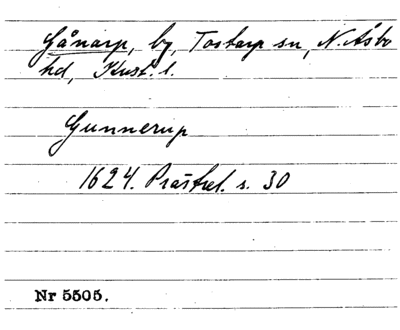 Gånarp, by, Tostarp sn, N. Åsbo
hd, Krist. l.
Gunnerup
1624. Prästrel. s. 30
Nr 5505.